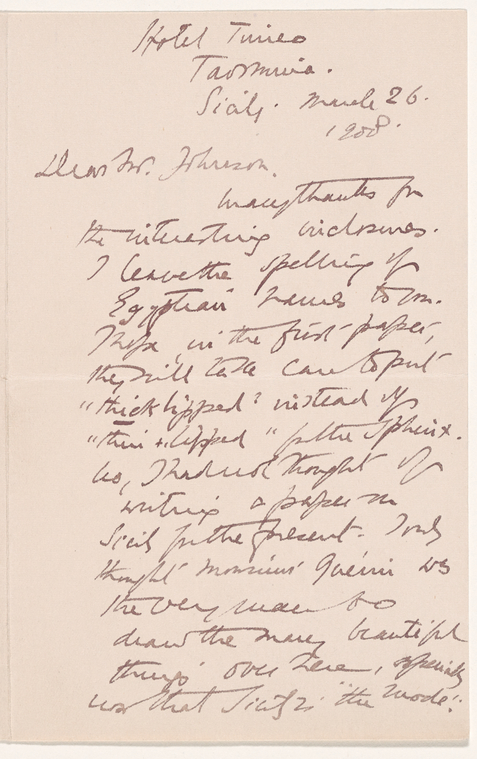 Hotel Timeo
Taormina.
Sicily. March 26.
1908.
Dear Mr. Johnson.
Many thanks for
the interesting inclosures.
I leave the spelling of
Egyptian names to you.
I hope, in the first paper,
they will take care to put
"thick lipped" instead of
"thin lipped" for the Sphinx.
No, I had not thought of
writing a paper on
Sicily for the present. I only
thought Monsieur Guérin was
the very man to
draw the many beautiful
things over here, especially
now that Sicily is "the mode".